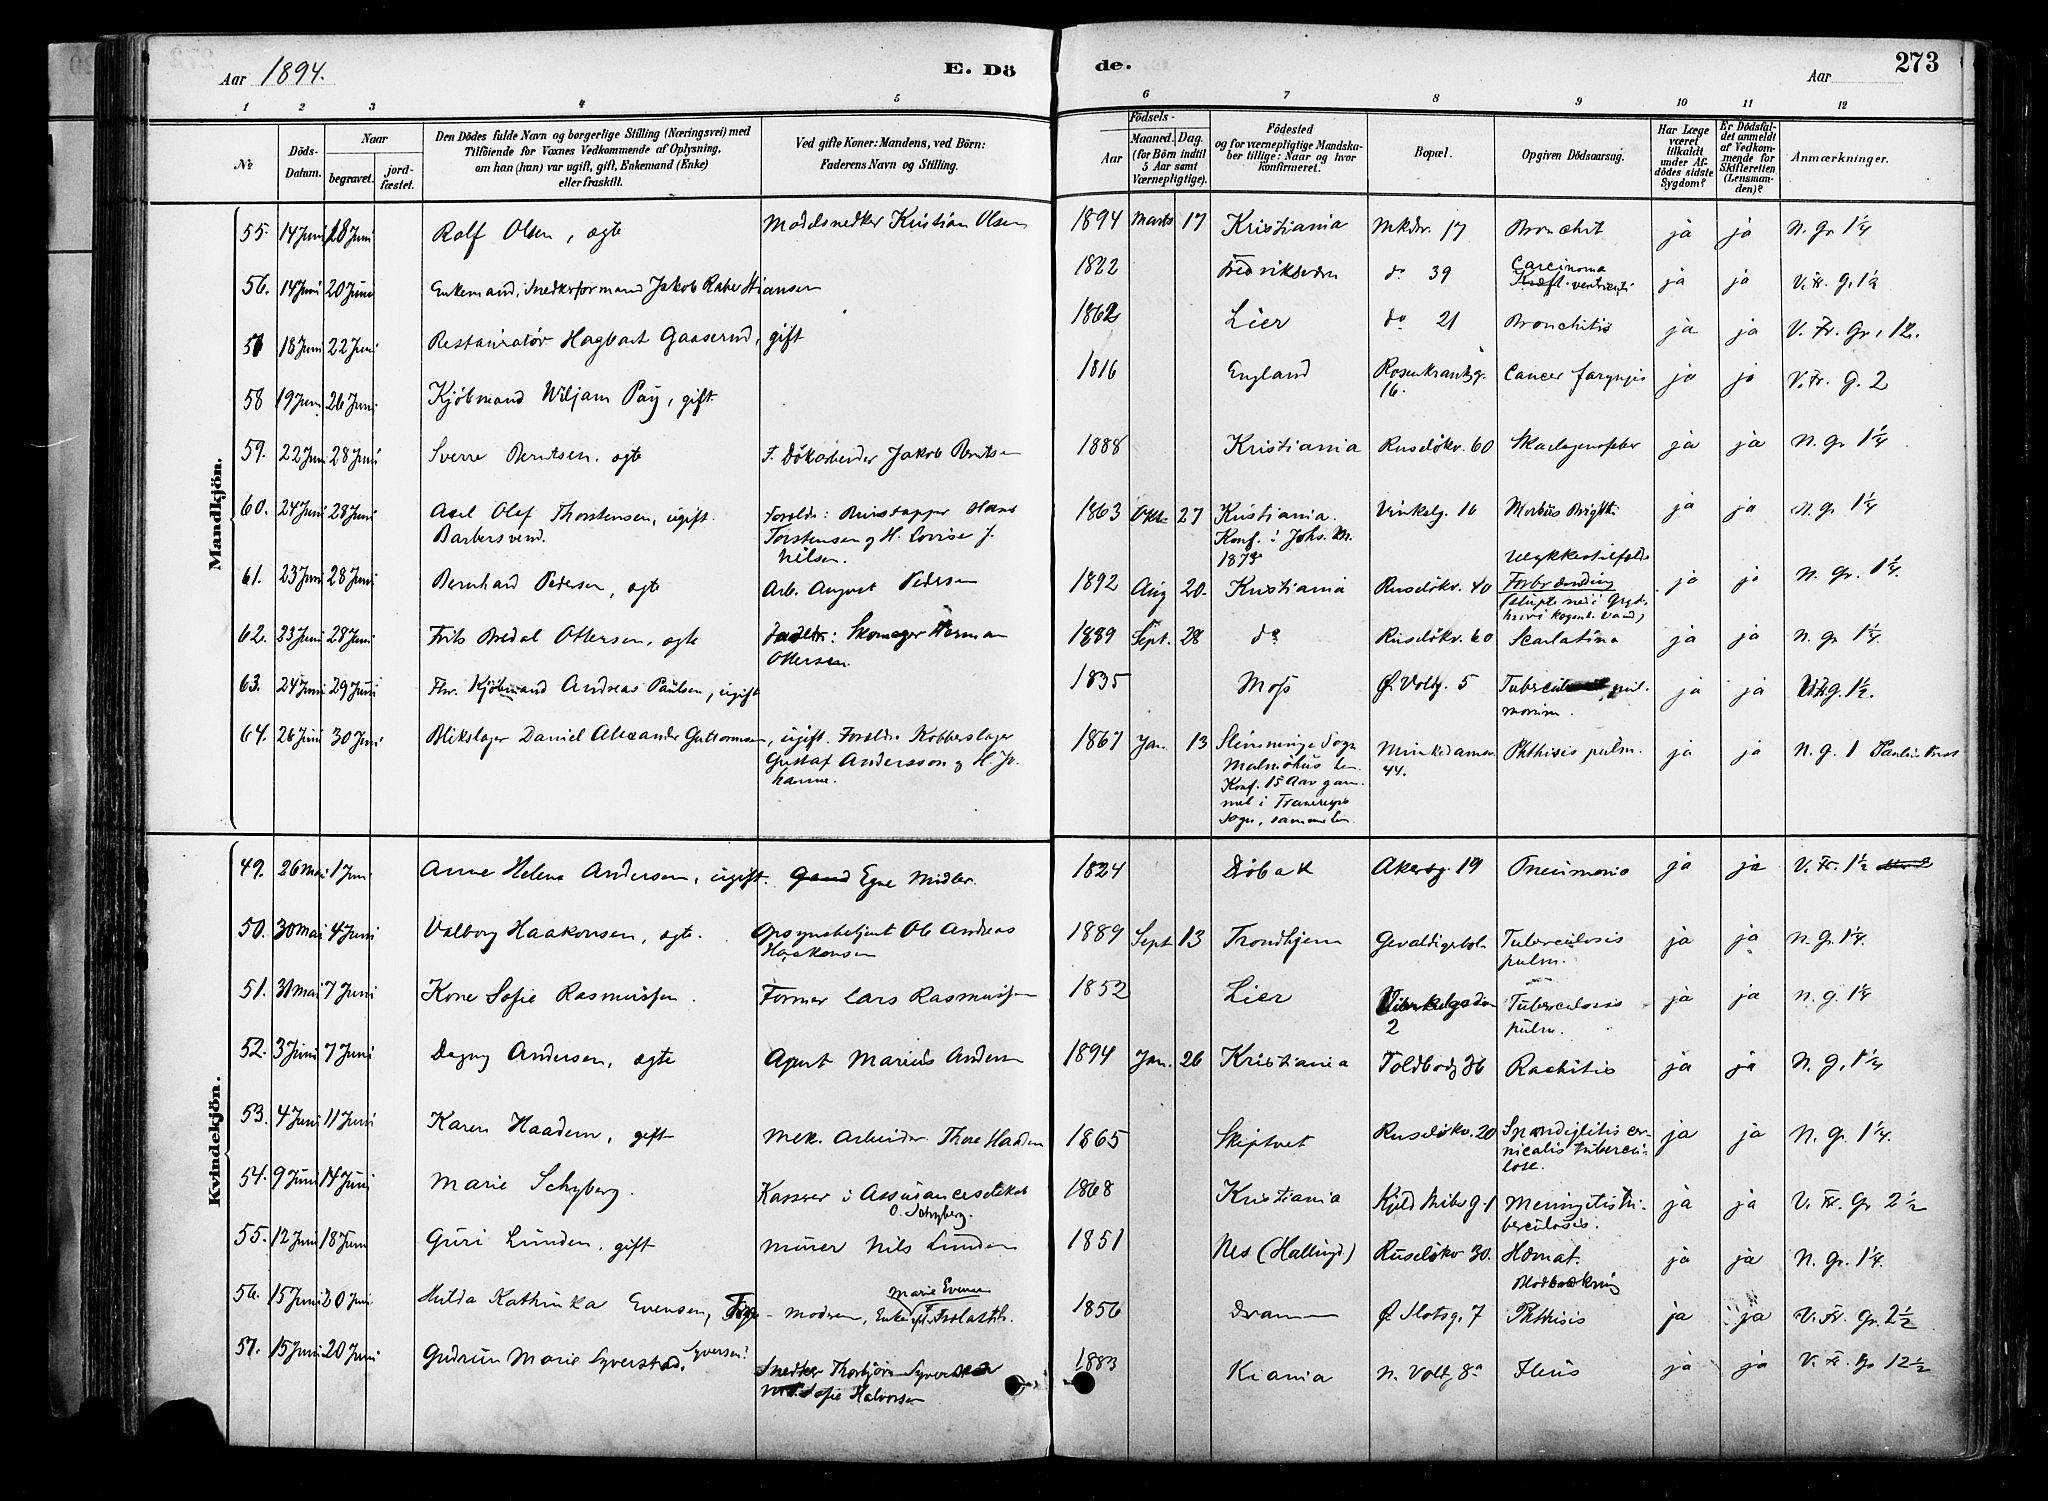 Aar 1894.
E. Dö
de.
Aar
273
1 2 3 4 5 6 7 8 9 10 11 12
No
Döds-Datum.
Naar
begravet.
jord-fæstet.
Den Dödes fulde Navn og borgerlige Stilling (Næringsvei) med
Tilföiende for Voxnes Vedkommende af Oplysning,
om han (hun) var ugift, gift, Enkemand (Enke)
eller fraskilt.
Ved gifte Koner: Mandens, ved Börn:
Faderens Navn og Stilling.
Födsels-
Aar
Maaned. Dag.
(for Börn indtil
5 Aar samt
Værnepligtige).
Födested
og for værnepligtige Mandska-
ber tillige: Naar og hvor
konfirmeret.
Bopæl.
Opgiven Dödsaarsag.
Har Læge
været
tilkaldt
under Af-
dödes sidste
Sygdom?
Er Dödsfal-
det anmeldt
af Vedkom-
mende for
Skifteretten
(Lensman-
den)?
Anmærkninger.
Mandkjön.
55. 14 Juni 18 Juni Rolf Olsen, ægte Modelsnedker Kristian Olsen 1894 Marts 17 Kristiania Mkdr. 17 Bronchit ja ja N. Gr. 1 1/4
56. 14 Juni 20 Juni Enkemand, Snedkerformand Jakob 1822 do 39 Carcinoma ventriculi ja ja V. Fr. G. 1 1/2
57 18 Juni 22 Juni Restauratør Hagbart Gaaserud, gift 1862 Lier do 21 Bronchitis ja ja V. Fr. Gr. 12.
58 19 Juni 26 Juni Kjøbmand Wiljam Pay, gift 1816 England Rosenkrantzg. 16. Cancer faryngis ja ja V. Fr. G. 2
59. 22 Juni 28 Juni Sverre Berntsen, ægte F. Jakob Berntsen 1888 Kristiania Ruseløkv. 60 Skarlagensfeber ja ja N. Gr 1 1/4
60. 24 Juni 28 Juni Axel Olaf Thorstensen, ugift. Hans 1863 Okt. 27 Kristiania. Vinkelg. 16 Morbus Brigthi ja ja N. Gr. 1 1/4
Barbersvend. Torstensen og H. Lovise J. Konf. i Johs. M.
Nilsen. 1878
Ulykkestilfælde
61. 23 Juni 28 Juni Bernhard Pedersen, ægte Arb. August Pedersen 1892 Aug 20. Kristiania Ruseløkv. 40 Forbrænding ja ja N. Gr. 1 1/4.
kogende Vand)
62. 23 Juni 28 Juni Frits Bredal Ottersen, ægte Skomager Herman 1889 Sept. 28 do Ruseløkv. 60 Scarlatina ja ja N. Gr 1 1/4
Ottersen.
63. 24 Juni 29 Juni Fhv. Kjøbmand Andreas Paulsen, ugift 1835 Moss Ø. Voldg. 5 ja ja
64. 26 Juni 30 Juni Blikslager Daniel Alexander Guttormsen, ugift. Forældre Kobberslager 1867 Jan. 13 Munkedamsv. 44. Phthisis pulm. ja ja N. G. 1
Gustaf Andersson og H. Jo- Malmöhus Len
hanne. Konf. 15 Aar gam-
mel i
Sogn,
Kvindekjön.
49. 26 Mai 1 Juni Anne Helene Andersen, ugift. Egne Midler. 1824 Drøbak Akersg. 19 Pneumonia ja ja V. Fr. 1 1/2
50. 30 Mai 4 Juni Valborg Haakonsen, ægte. Opsynsbetjent Ole Andreas 1889 Sept 13 Trondhjem Tuberculosis ja ja N. Gr. 1 1/4.
Haakonsen pulm.
51. 31 Mai 7 Juni Kone Sofie Rasmussen. Former Lars Rasmussen 1852 Lier 2 Tuberculosis ja ja N. G. 1 1/4
pulm.
52. 3 Juni 7 Juni Dagny Andersen, ægte Agent Marius Andersen 1894 Jan. 26 Kristiania Toldbodg 36 Rachitis ja ja N. G. 1 1/4
53. 4 Juni 11 Juni Karen Haadem, gift Mek. Arbeider Thore Haadem 1865 Skiptvet Ruseløkv. 20 Spondylitis cer- ja ja N. Gr. 1 1/4.
vicalis tubercu-
lose.
54. 9 Juni 14 Juni Marie Schyberg. Kasserer i Assuranceselskab 1868 Kristiania Meningitis tu- ja ja V. Fr. Gr 2 1/2
O. Schyberg. berculosis.
55. 12 Juni 18 Juni Guri Lunden, gift Murer Nils Lunden 1851 Nes (Hallingd) Ruseløkv 30. Hæmat. ja ja N. Gr. 1 1/4.
Blodbrækning
Marie Evensen
56. 15 Juni 20 Juni Hilda Kathinka Evensen, Moderen, Enke eft. 1856 Dramm Ø Slotsg. 7 Phthisis ja ja V. Fr. Gr. 2 1/2
57. 15 Juni 20 Juni Gudrun Marie Syverstad. Syversen! Snedker Thorbjørn 1883 Kiania N. Voldg 8a Ileus ja ja V. Fr. Gr 12 1/2
Sofie Halvorsen